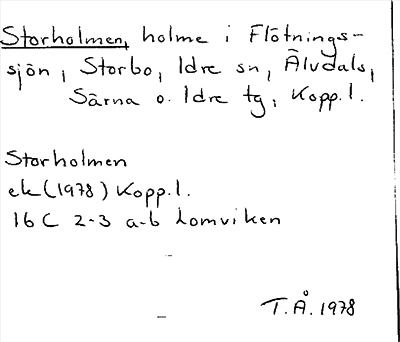 Storholmen, holme i Flötnings-
sjön, Storbo, Idre sn, Älvdals,
Särna o. Idre tg, Kopp.l.
Storholmen
ek (1978) Kopp.l.
16 C 2-3 a-b Lomviken
T.Å. 1978